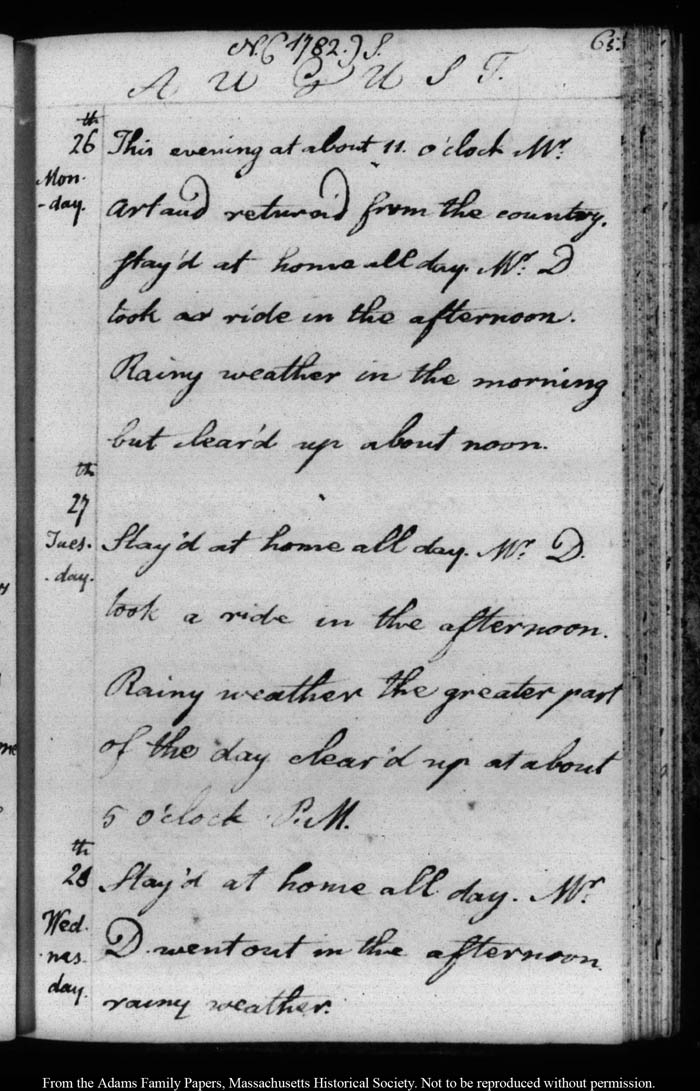 N.( 1782.) S.
65.
AUGUST.
th
26
Mon-
-day.
This evening at about 11. o'clock Mr.
Artaud return'd from the country.
stay'd at home all day. Mr. D
took a ride in the afternoon.
Rainy weather in the morning
but clear'd up about noon.
th
27
Tues-
-day.
Stay'd at home all day. Mr. D.
took a ride in the afternoon.
Rainy weather the greater part
of the day clear'd up at about
5 o'clock P.M.
th
28
Wed-
nes-
day.
Stay'd at home all day. Mr.
D. went out in the afternoon.
rainy weather.
From the Adams Family Papers, Massachusetts Historical Society. Not to be reproduced without permission.